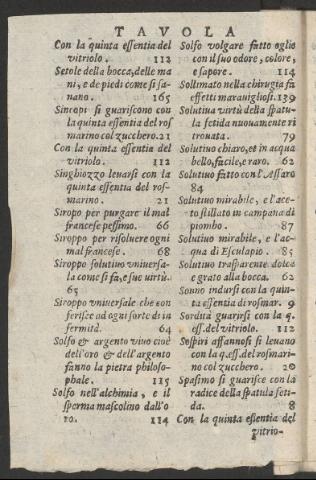 TAVOLA
Con la quinta essentia del
vitriolo. 112
Setole della bocca, delle ma
ni, e de piedi come si sa-
nano. 165
Sincopi si guariscono con
la quinta essentia del ros
marino col zucchero. 21
Con la quinta essentia del
vitriolo. 112
Singhiozzo leuarsi con la
quinta essentia del ros-
marino. 21
Siropo per purgare il mal
francese pessimo. 66
Siroppo per risoluere ogni
mal francese. 68
Siroppo solutiuo vniuersa-
la come si fa, e sue virtù.
65
Siroppo vniuersale che con
ferisce ad ogni sorte di in
fermità. 64
Solfo & argento viuo cioè
dell'oro & dell'argento
fanno la pietra philoso-
phale. 115
Solfo nell'alchimia, e il
sperma mascolino dall'o
ro. 114
Solfo volgare fatto oglio
con il suo odore, colore,
e sapore. 114
Sollimato nella chirugia fa
effetti marauigliosi. 139
Solutiua virtù della spatu-
la fetida nuouamente ri
trouata. 79
Solutiuo chiaro, et in acqua
bello, facile, e raro. 62
Solutiuo fatto con l'Assaro
84
Solutiuo mirabile, e l'ace-
to stillato in campana di
piombo. 87
Solutiuo mirabile, e l'ac-
qua di Esculapio. 85
Solutiuo trasparente dolce
e grato alla bocca. 62
Sonno indursi con la quin-
ta essentia di rosmar. 9
Sordità guarirsi con la q.
ess. del vitriolo. 112
Sospiri affannosi si leuano
con la q. ess. del rosmari-
no col zucchero. 20
Spasimo si guarisce con la
radice della spatula feti-
da. 8
Con la quinta essentia del
vitrio-